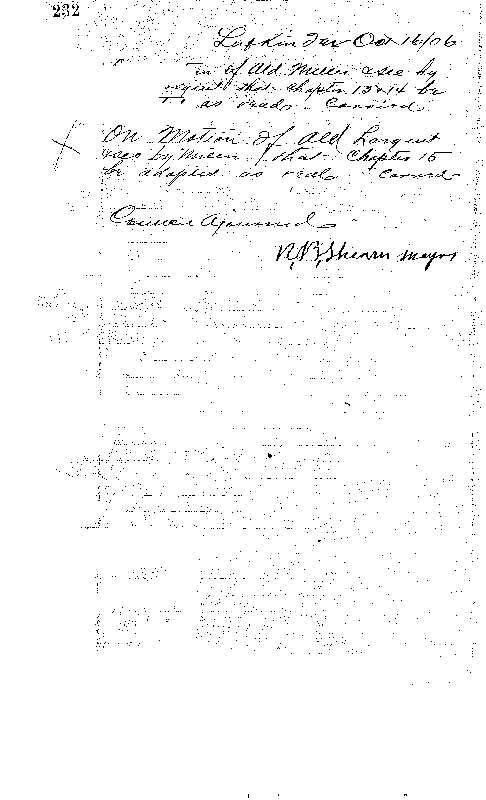 232
Lufkin Tex Oct 16/06
of Ald Mireen & sec by
that Chapter 13 & 14 be
as read Carried
On Motion of Ald Largent
& sec by Mireen that Chapter 15
be adopted as read Carried
Council Ajourned
R, B, Shearer Mayor